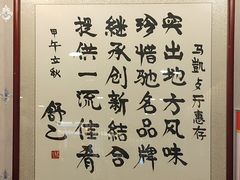 马凯食厅惠存
突出地方风味
珍惜驰名品牌
继承创新结合
提供一流佳肴
甲午立秋
舒乙